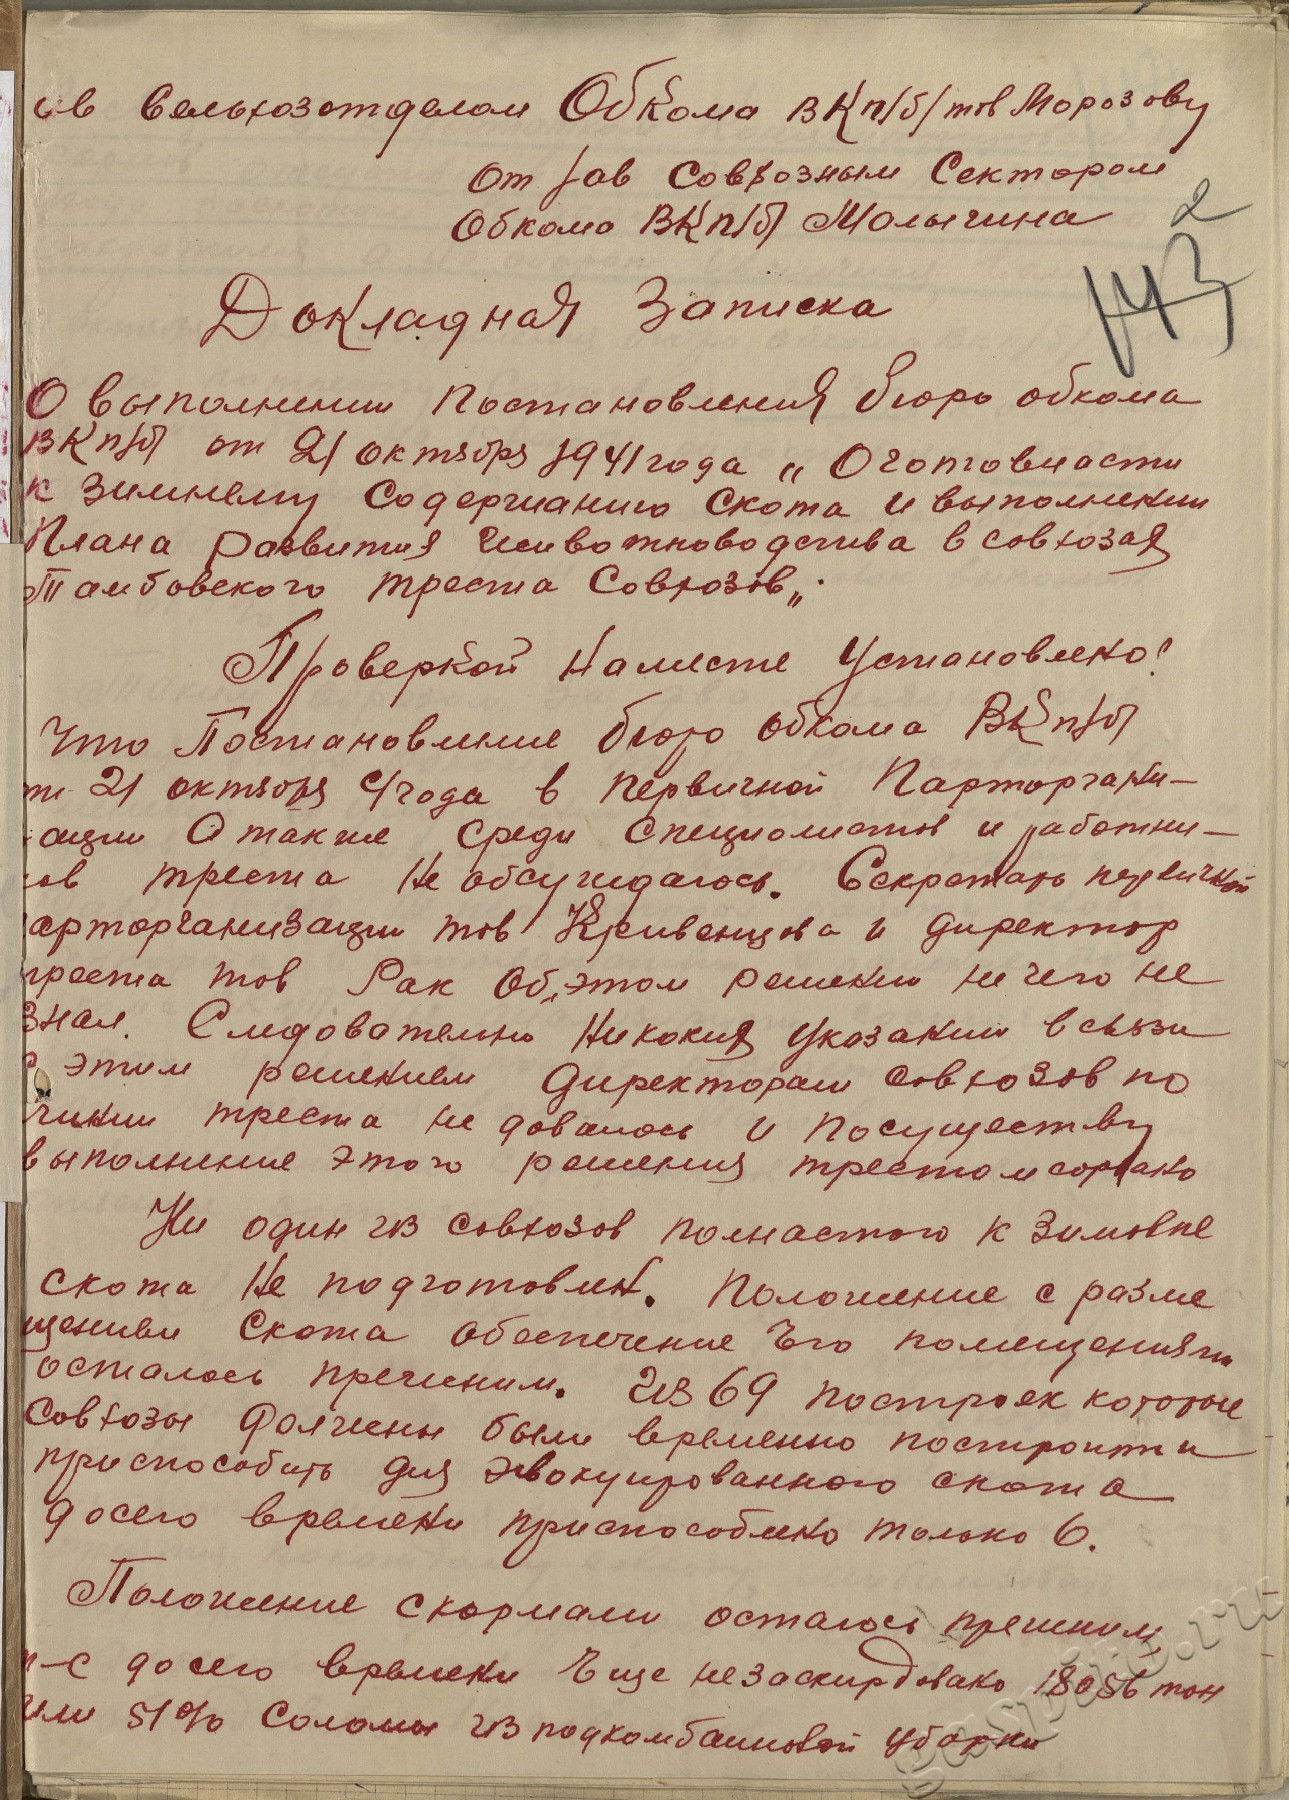 ав Сельхозотделом Обкома ВКп/б/ тов Морозову
От Зав Совхозным Сектором
Обкома ВКп/б/ Молычина
2
143
Докладная Записка
О выполнении Постановления бюро обкома
ВКп/б/ от 21 октября 1941 года „О готовности
к зимнему содержанию скота и выполнении
Плана развития животноводства в совхозах
Тамбовского треста Совхозов„.
Проверкой на месте установлено!
Что Постановление бюро обкома ВКп/б/
от 21 октября с/года в первичной Парторгани-
зации а также среди специалистов и работни-
ков треста не обсуждалось. Секретарь первичной
парторганизации тов Кривенцова и директор
треста тов Рак об„этом решении ни чего не
знал. Следовательно никаких указании в связи
с этим решением директорам совхозов по
линии треста не довалось и посуществу
выполнение этого решения трестом сорвано
Ни один из совхозов полностью к зимовке
скота не подготовлен. Положение с разме
щением скота обеспечение его помещениями
осталось прежним. Из 69 построек которые
совхозы должны были временно построить и
приспособить для эвокуированного скота
досего времени приспособлено только 6.
Положение скормами осталось прежним
т-с досего времени еще незаскирдовано 18056 тон
или 51% Соломы из подкомбайновой уборки
gaspito.ru